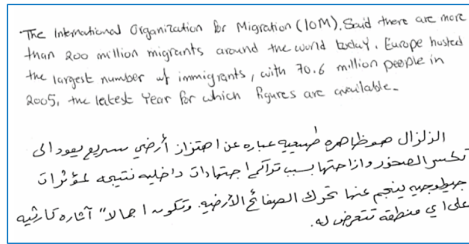 The International Organization for Migration (IOM). Said there are more
than 200 million migrants around the world today. Europe hosted
the largest number of immigrants, with 70.6 million people in
2005, the latest Year for which figures are available.
الزلزال هو ظاهرة طبيعية عبارة عن اهتزاز أرضي سريع يعود الى
تكسر الصخور وازاحتها بسبب تراكم اجتهادات داخلية نتيجة لمؤثرات
جيولوجية ينجم عنها تحرك الصفائح الأرضية. وتكون اجمالا" آثاره كارثية
على اي منطقة تتعرض له.